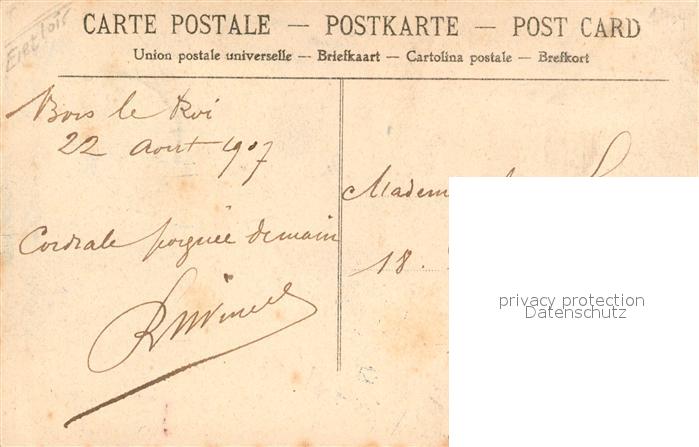 Eure et loir
CARTE POSTALE — POSTKARTE — POST CARD
Union postale universelle — Briefkaart — Cartolina postale — Brefkort
Bois le Roi
22 août 1907
Cordiale poignée de main
Madem
18.
privacy protection
Datenschutz